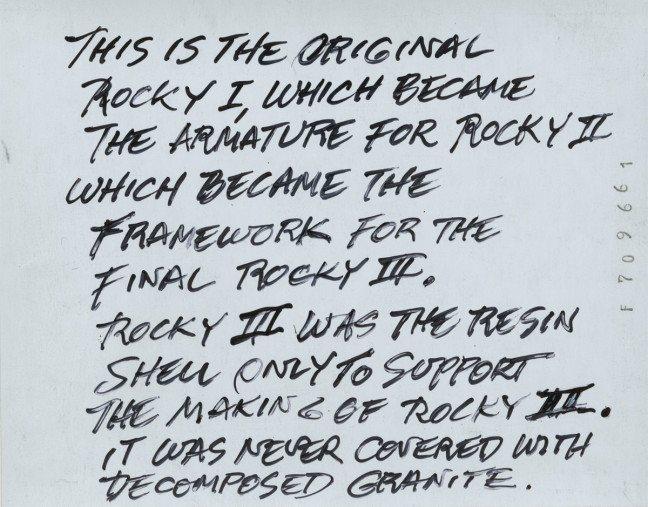 THIS IS THE ORIGINAL
ROCKY I, WHICH BECAME
THE ARMATURE FOR ROCKY II
WHICH BECAME THE
FRAMEWORK FOR THE
FINAL ROCKY III.
ROCKY III WAS THE RESIN
SHELL ONLY TO SUPPORT
THE MAKING OF ROCKY III.
IT WAS NEVER COVERED WITH
DECOMPOSED GRANITE.
F 709661